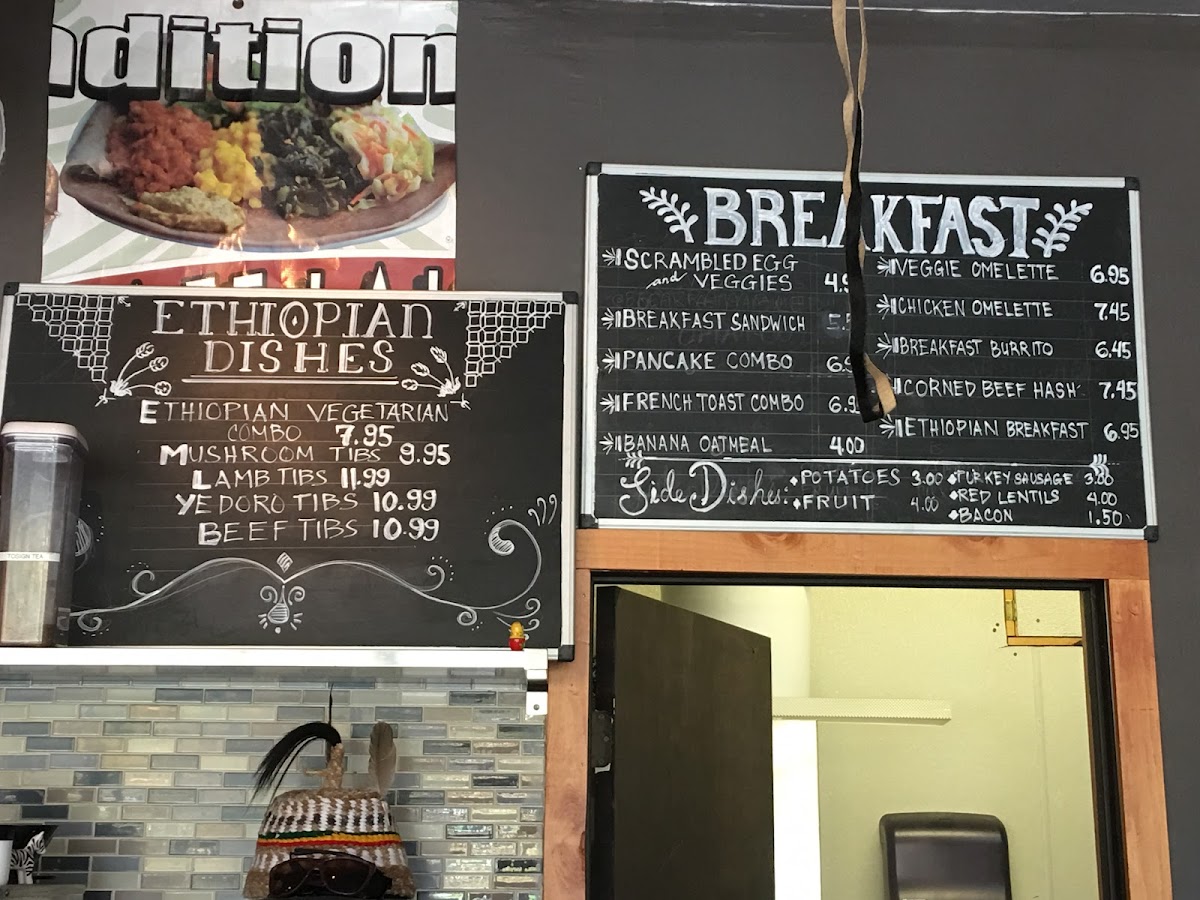 adition
ETHIOPIAN
DISHES
ETHIOPIAN VEGETARIAN
COMBO 7.95
MUSHROOM TIBS 9.95
LAMB TIBS 11.99
YE DORO TIBS 10.99
BEEF TIBS 10.99
TOSIGN TEA
BREAKFAST
SCRAMBLED EGG
and VEGGIES 4.9
BREAKFAST SANDWICH 5.5
PANCAKE COMBO 6.9
FRENCH TOAST COMBO 6.9
BANANA OATMEAL 4.00
VEGGIE OMELETTE 6.95
CHICKEN OMELETTE 7.45
BREAKFAST BURRITO 6.45
CORNED BEEF HASH 7.45
ETHIOPIAN BREAKFAST 6.95
Side Dishes:
POTATOES 3.00
FRUIT 4.00
TURKEY SAUSAGE 3.00
RED LENTILS 4.00
BACON 1.50